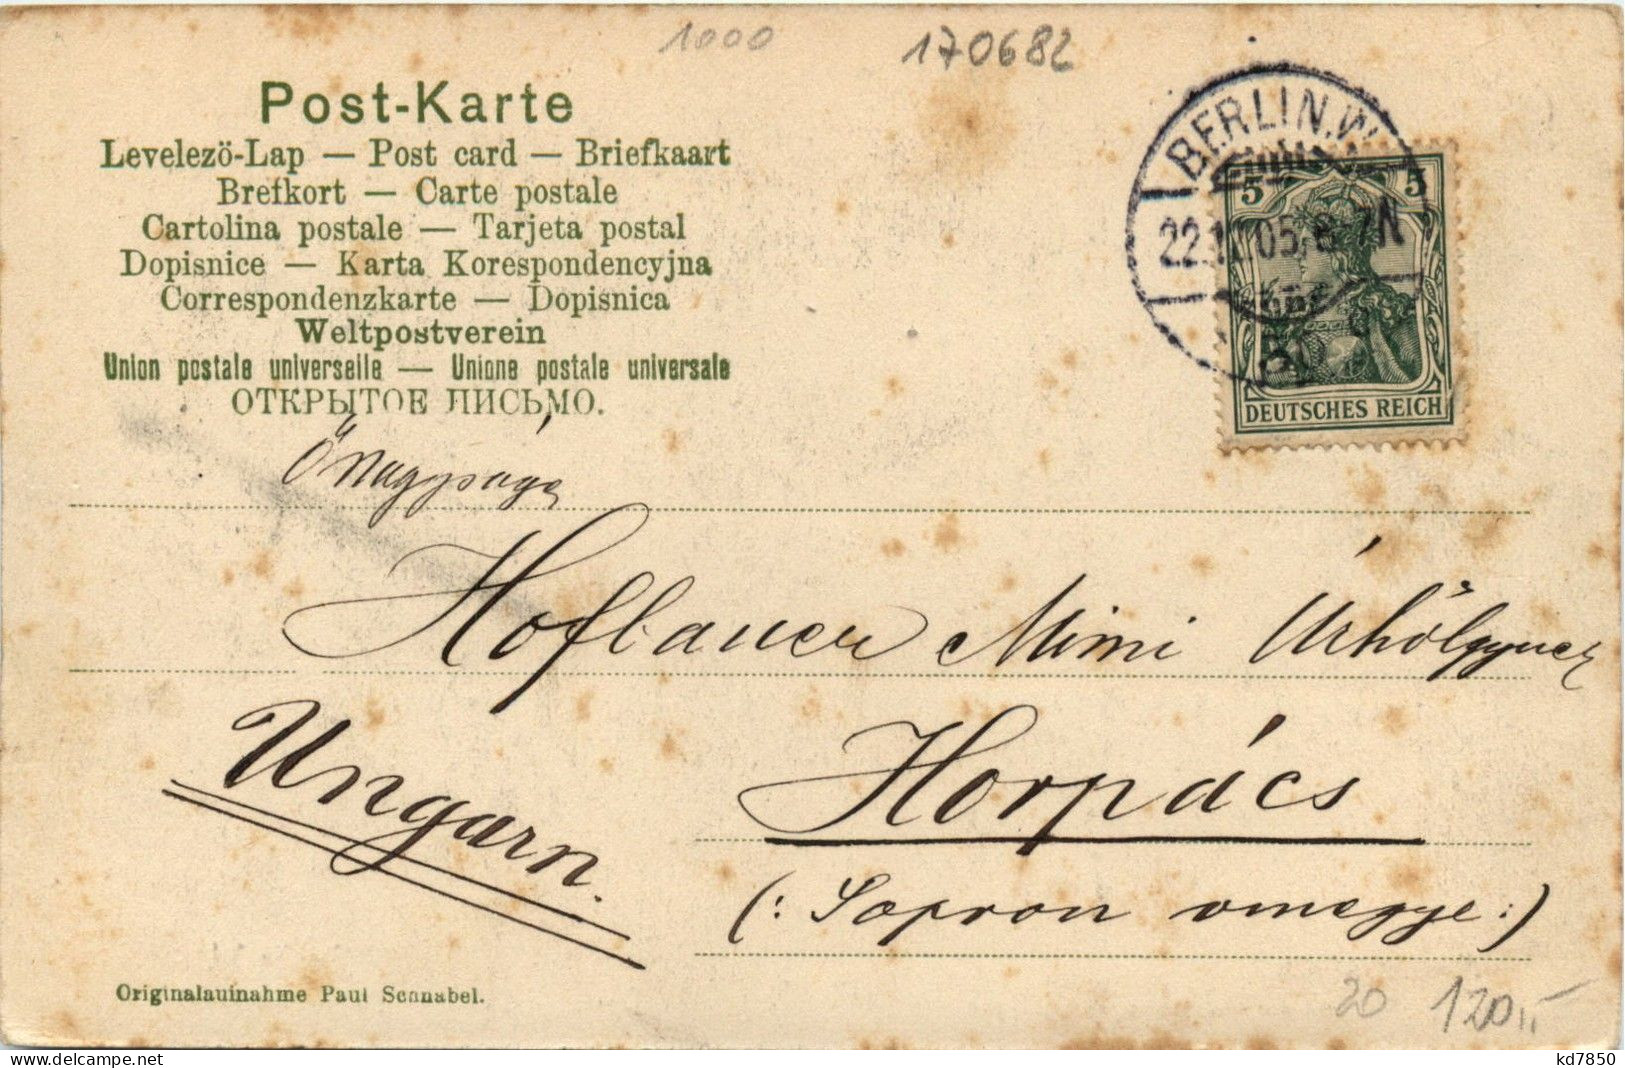 1000
170682
Post-Karte
Levelezö-Lap — Post card — Briefkaart
Brefkort — Carte postale
Cartolina postale — Tarjeta postal
Dopisnice — Karta Korespondencyjna
Correspondenzkarte — Dopisnica
Weltpostverein
Union postale universelle — Unione postale universale
ОТКРЫТОЕ ПИСЬМО.
BERLIN.W.
5 5
DEUTSCHES REICH
Ő Nagysága
Hoflauer Mimi Úrhölgynek
Horpács
Ungarn.
(: Sopron vmegye :)
Originalaufnahme Paul Schnabel.
20
120,,
kd7850